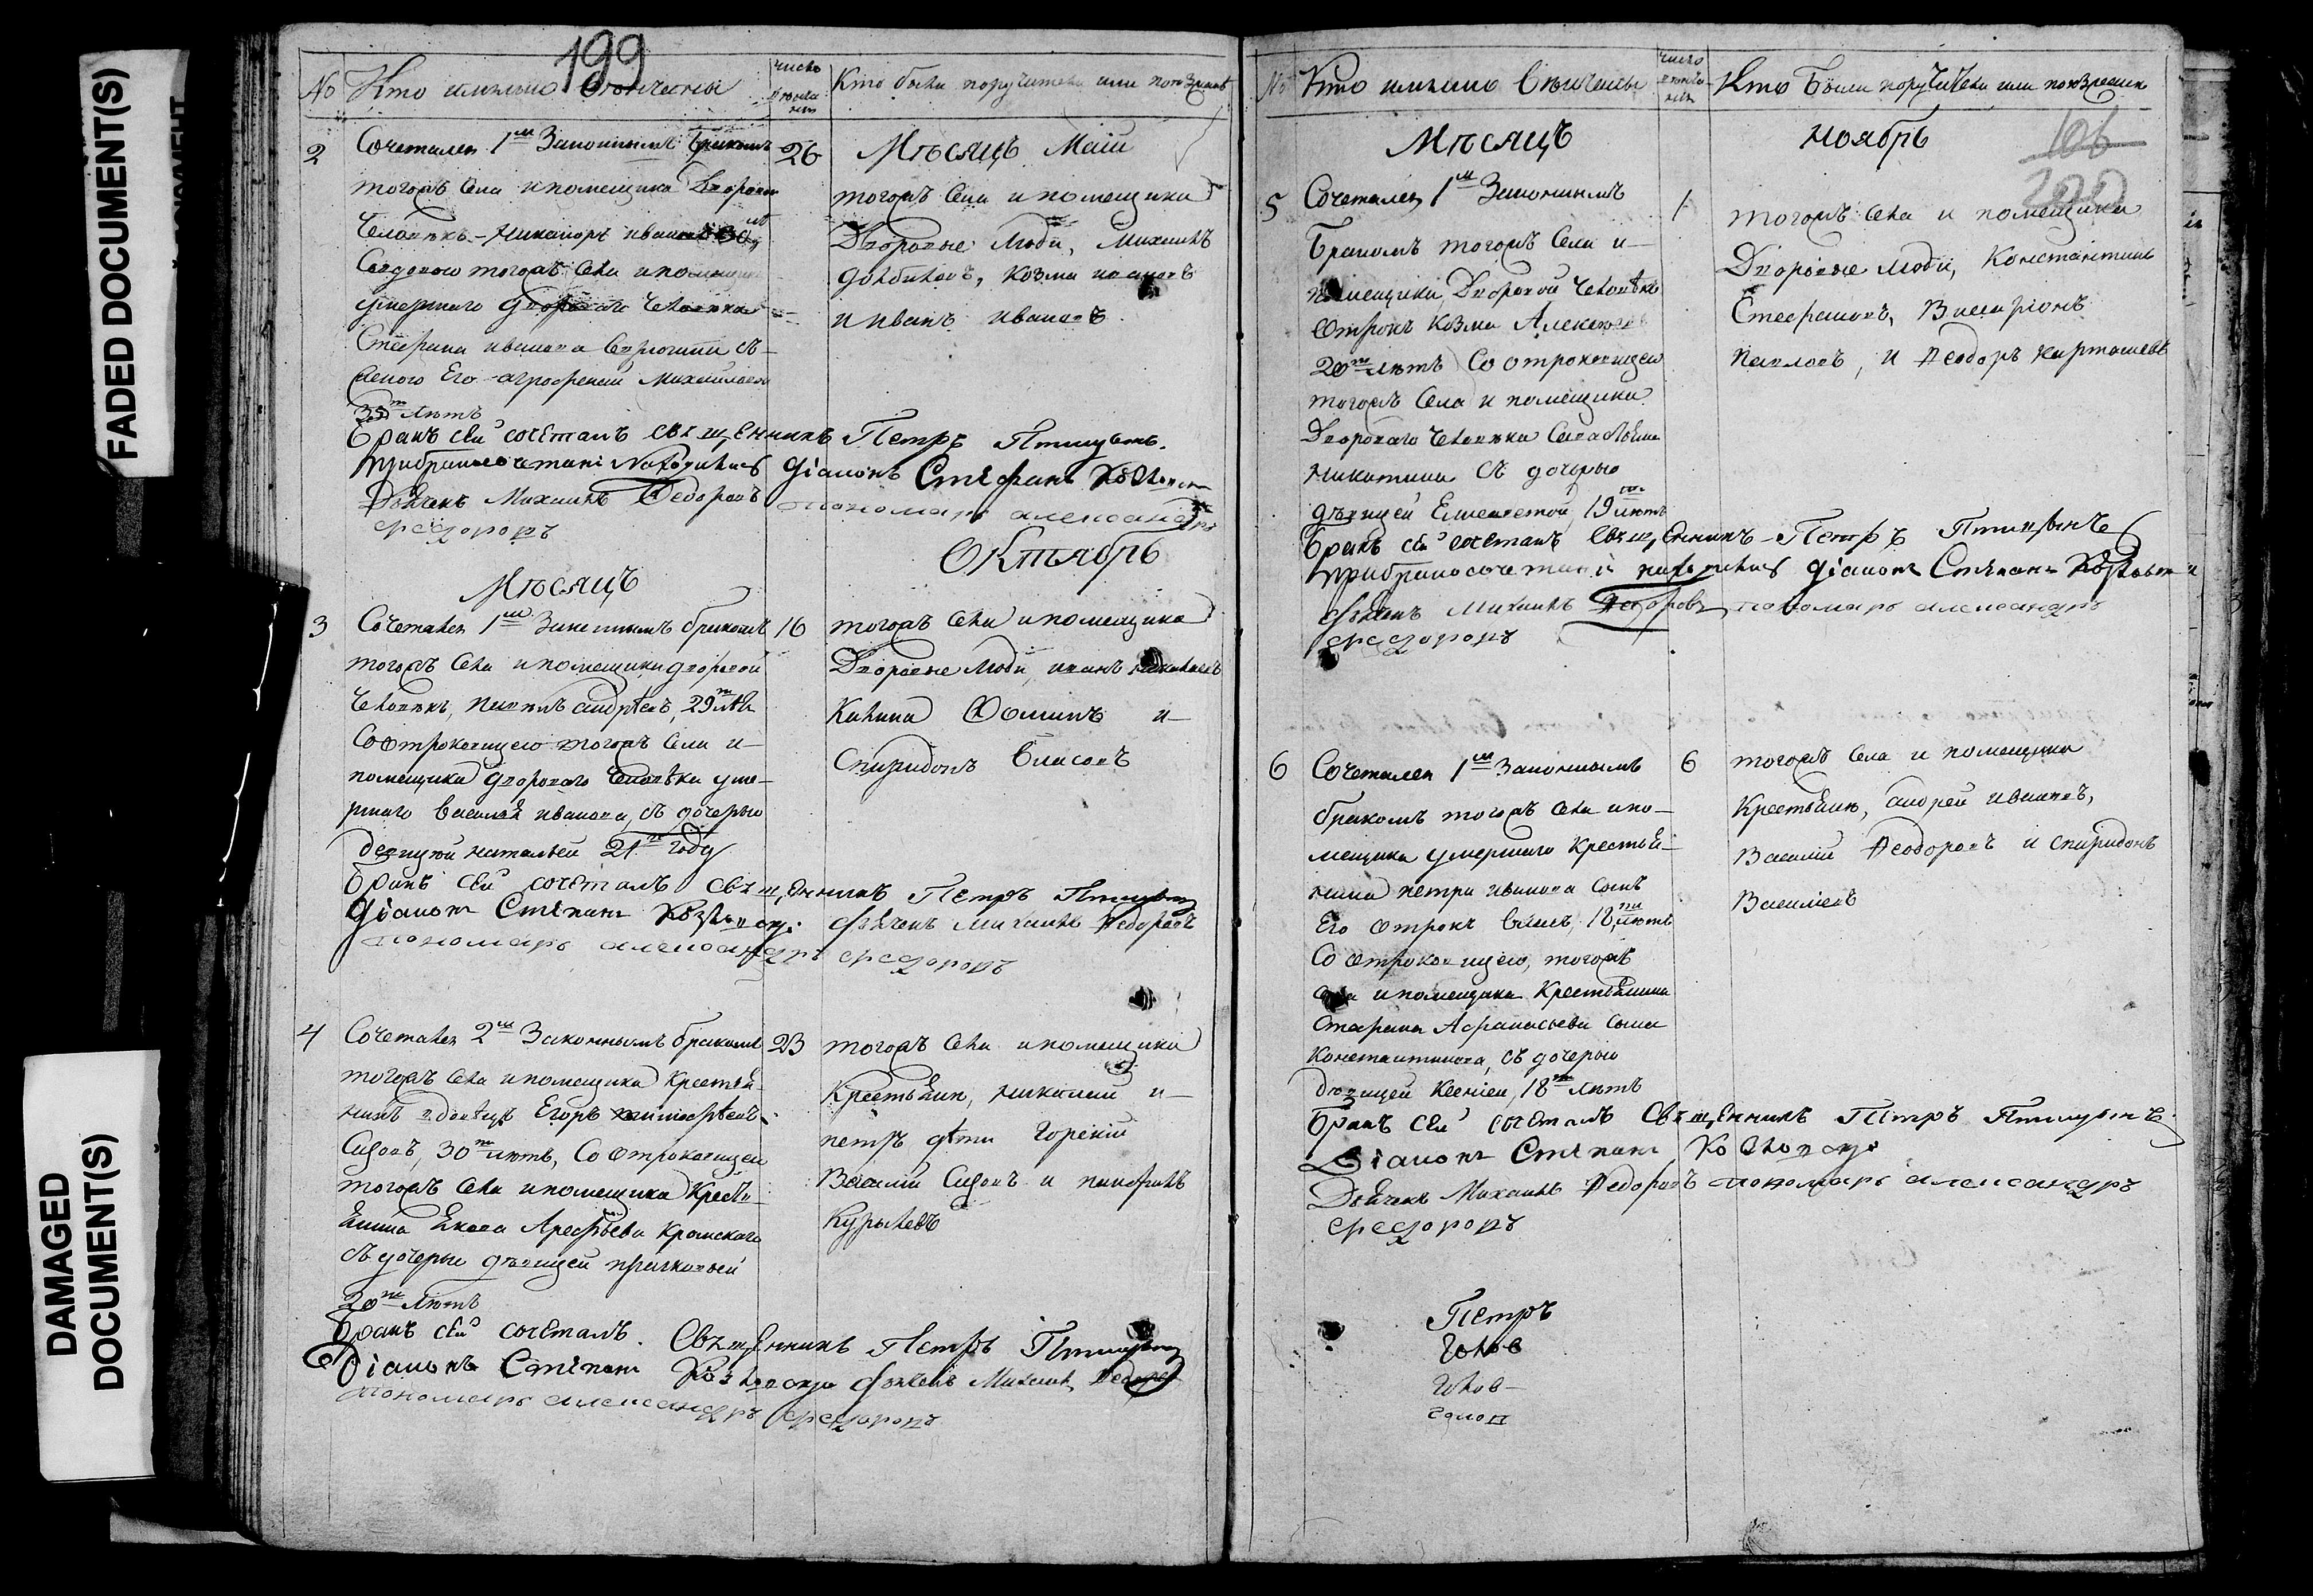 FADED DOCUMENT(S)
DAMAGED
DOCUMENT(S)
199
№ Кто имянно венчаны
число
Кто были поручители или поезжане
2 Сочетался 1м Законнымъ бракомъ 26
Мѣсяцъ Маій
тогожъ Села и помещика Дворовой
Человѣкъ Никаноръ Ивановъ 30
тогожъ Села и помещика
умершаго дворового человѣка
Стефана иванова
Его агрофеной Михайловой
35 лѣтъ
тогожъ Села и помещика
Дворовые Люди, Михаилъ
козма ивановъ
и иванъ ивановъ
Бракъ сей сочеталъ священникъ Петръ Птицынъ
при бракосочетаніи находились діаконъ Стефанъ
Дьячекъ Михаилъ Федоровъ пономарь александръ
федоровъ
Мѣсяцъ Октябрь
3 Сочетался 1м Законнымъ бракомъ 16
тогожъ Села и помещика дворовой
Человѣкъ, павелъ андрѣевъ, 29 лѣтъ
Со отроковицею тогожъ Села и
помещика дворового Человѣка уме-
ршаго василья иванова, съ дочерью
девицой натальей 21 году
тогожъ Села и помещика
Дворовые Люди, иванъ
Фоминъ и
Спиридонъ Власовъ
Бракъ сей сочеталъ священникъ Петръ Птицынъ
Діаконъ Стефанъ дьячекъ Михаилъ Федоровъ
пономарь александръ федоровъ
4 Сочетался 2м Законнымъ бракомъ 23
тогожъ Села и помещика Крестья-
нинъ вдовецъ Егоръ
30 лѣтъ, Со отроковицею
тогожъ Села и помещика Крестья-
нина Якова Арефьева
съ дочерью дѣвицей прасковьей
20 лѣтъ
тогожъ Села и помещика
Крестьяне, николай и
петръ дѣти Горскій
Василій и
Бракъ сей сочеталъ Священникъ Петръ Птицынъ
Діаконъ Стефанъ дьячекъ Михаилъ Федоровъ
пономарь александръ федоровъ
№ Кто имянно венчаны
число
Кто были поручители или поезжане
106
200
Мѣсяцъ Ноябрь
5 Сочетался 1м Законнымъ 1
Бракомъ тогожъ Села и
помещика Дворовой Человѣкъ
отрокъ Козма Алексѣевъ
20 лѣтъ Со отроковицею
тогожъ Села и помещика
Дворового Человѣка
никитина съ дочерью
дѣвицей Елисаветой, 19 лѣтъ
тогожъ Села и помещика
Дворовые Люди, Константинъ
Стефановъ, Висаріонъ
павловъ, и Феодоръ карташевъ
Бракъ сей сочеталъ Священникъ Петръ Птицынъ
при бракосочетаніи находились діаконъ Стефанъ
дьячекъ Михаилъ Федоровъ, пономарь александръ
федоровъ
6 Сочетался 1м Законнымъ 6
бракомъ тогожъ Села и по-
мещика умершаго Крестья-
нина петра иванова сынъ
Его отрокъ 18 лѣтъ
Со отроковицею, тогожъ
Села и помещика Крестьянина
Афанасьева сына
константинова, съ дочерью
дѣвицей Ксеніей, 18 лѣтъ
тогожъ Села и помещика
Крестьяне, андрей ивановъ,
Василій Феодоровъ и спиридонъ
Василіевъ
Бракъ сей сочеталъ Священникъ Петръ Птицынъ
Діаконъ Стефанъ
Дьячекъ Михаилъ Федоровъ пономарь александръ
федоровъ
Петръ